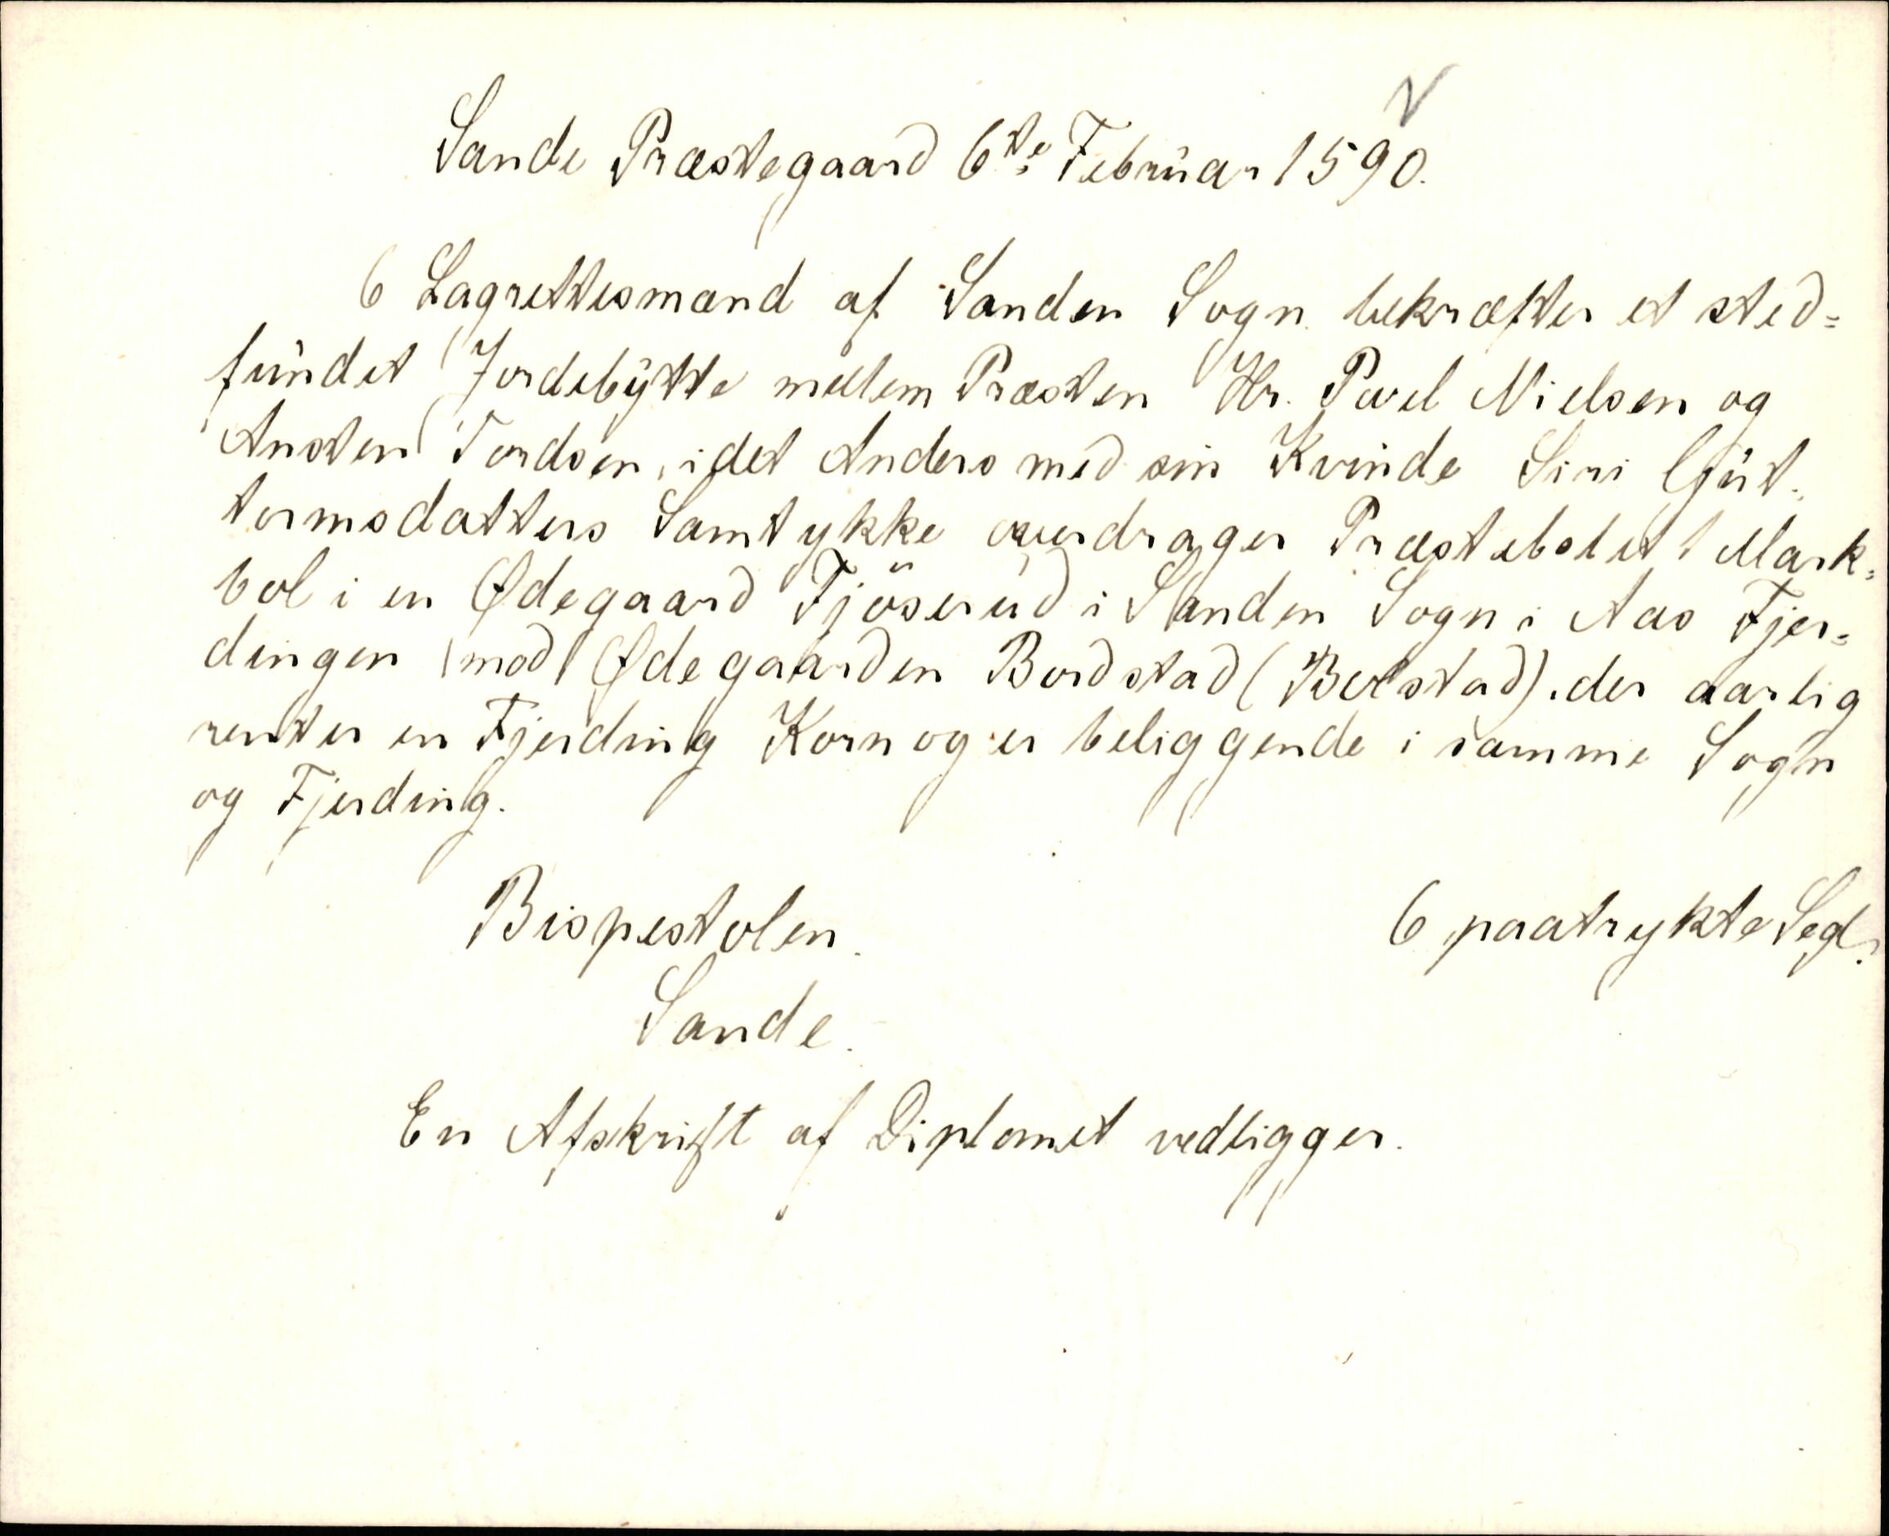 Sande Præstegaard 6te Februar 1590.
6 Lagrettesmænd af Sanden Sogn bekræfter et sted=
fundet Jordebytte mellem Præsten Hr. Pavel Nielsen og
Ansten Tordsen, idet Anders med sin Kvinde Siri Gut-
tormsdatters Samtykke overdrager Præstebolet 1 Mark=
bol i en Ødegaard Fjöserud i Sanden Sogn i Aas Fjer=
dingen mod Ødegaarden Bordstad (Bolstad), der aarlig
renter en Fjerding Korn og er beliggende i samme Sogn
og Fjerding.
Bispestolen. 6 paatrykte Segl.
Sande.
En Afskrift af Diplomet vedligger.